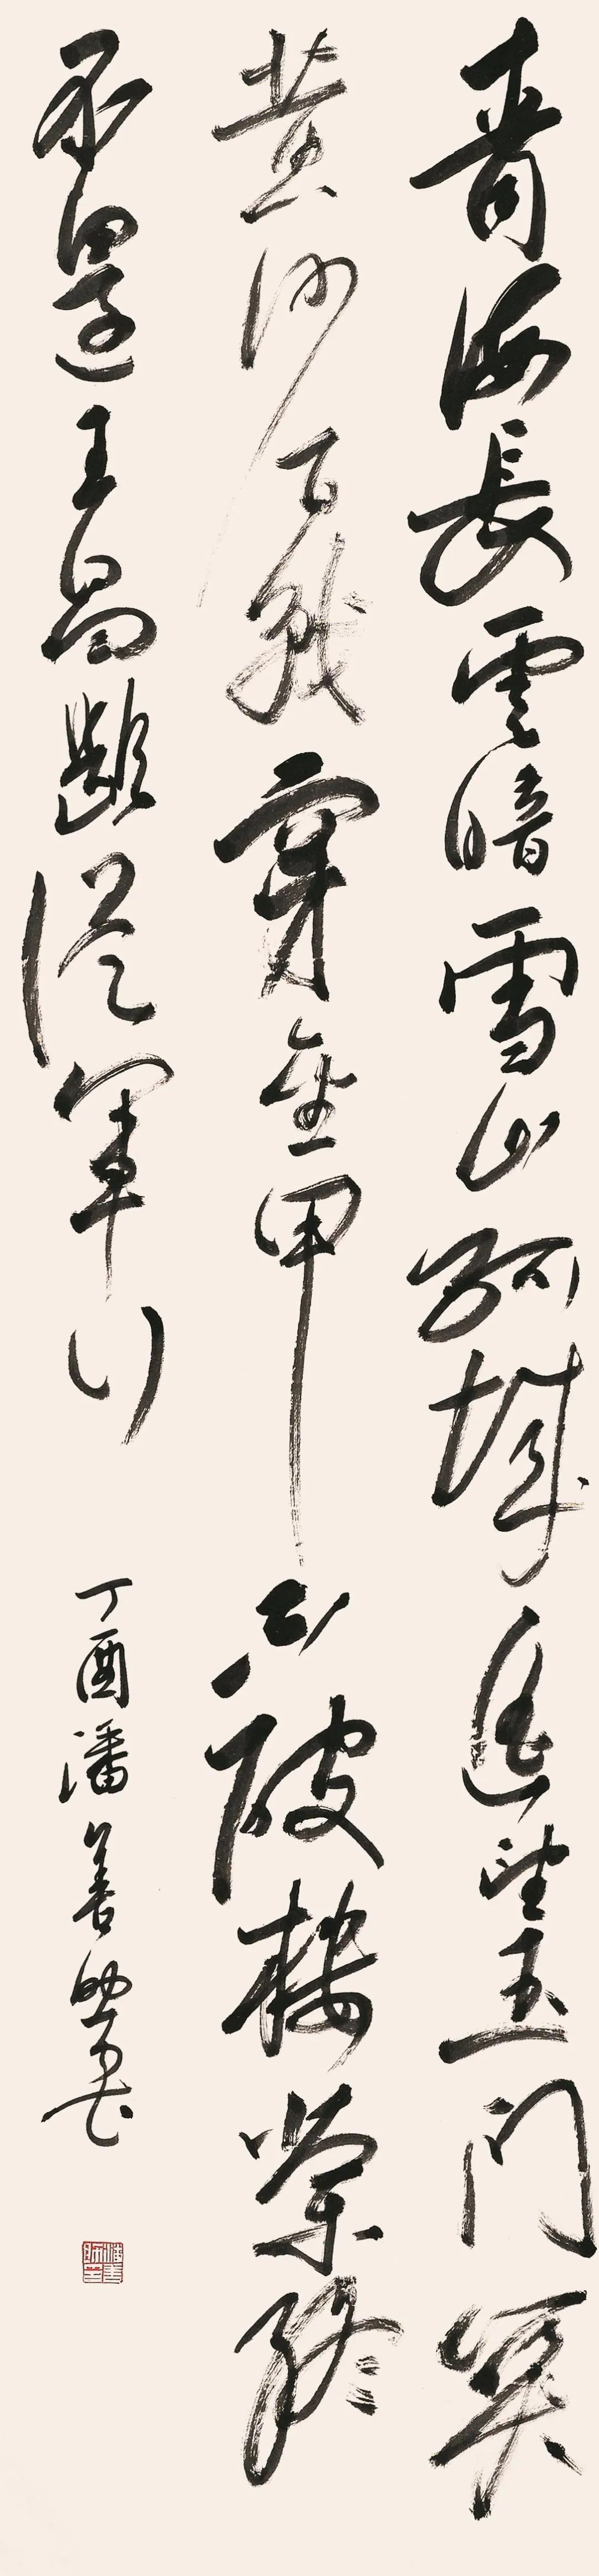 青海長雲暗雪山孤城遙望玉門關
黄沙百戰穿金甲不破樓蘭終
不還王昌齡從軍行
丁酉潘善助書